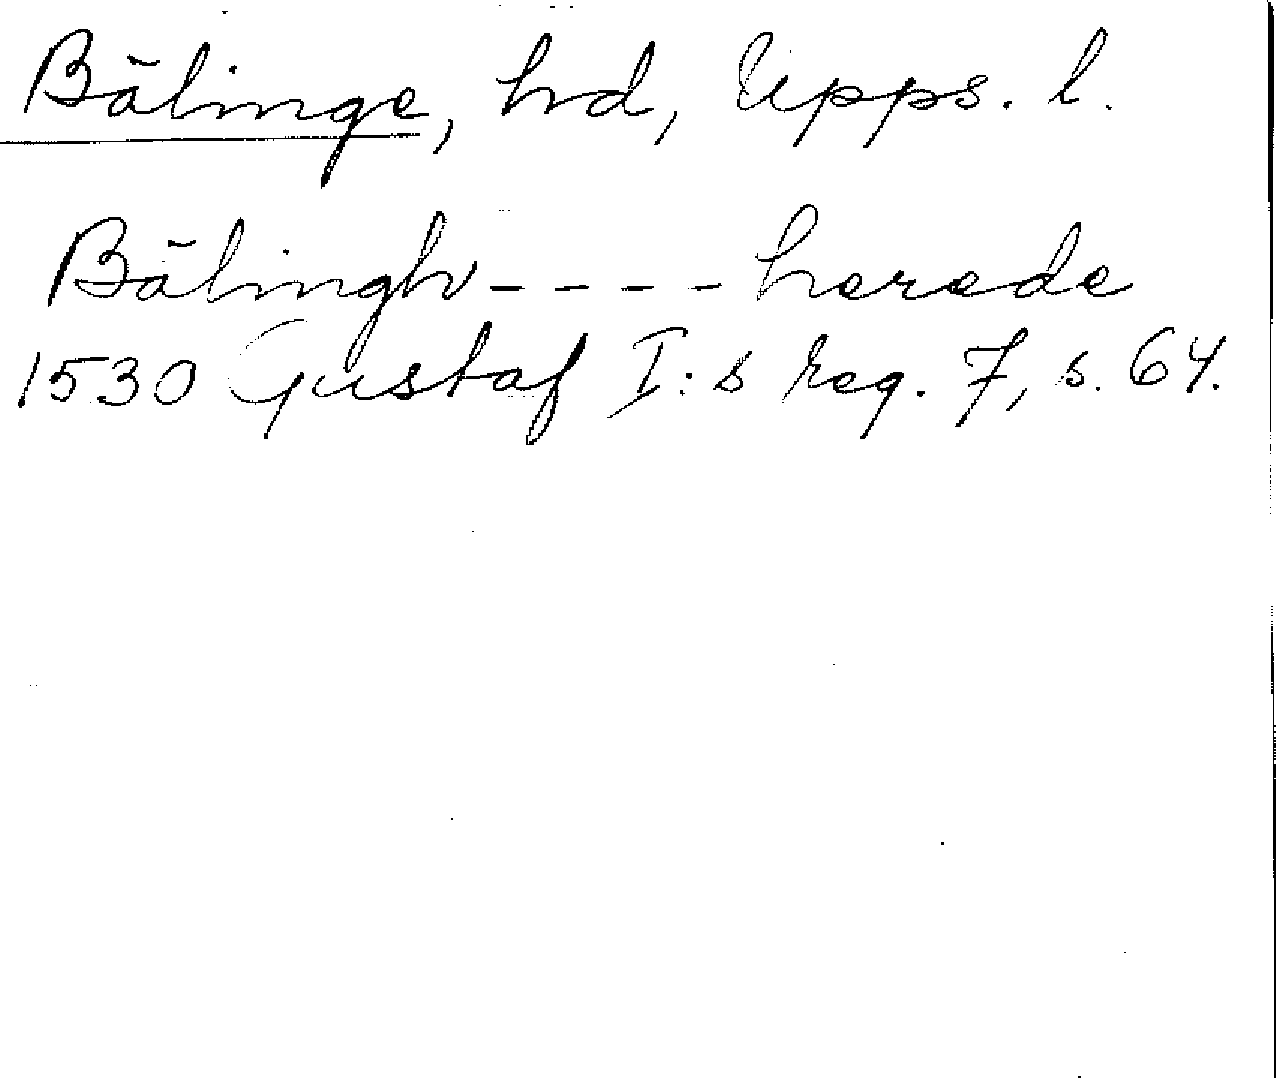 Bälinge, hd, Upps. l.
Bälingh - - - - herede
1530 Gustaf I:s reg. 7, s. 64.